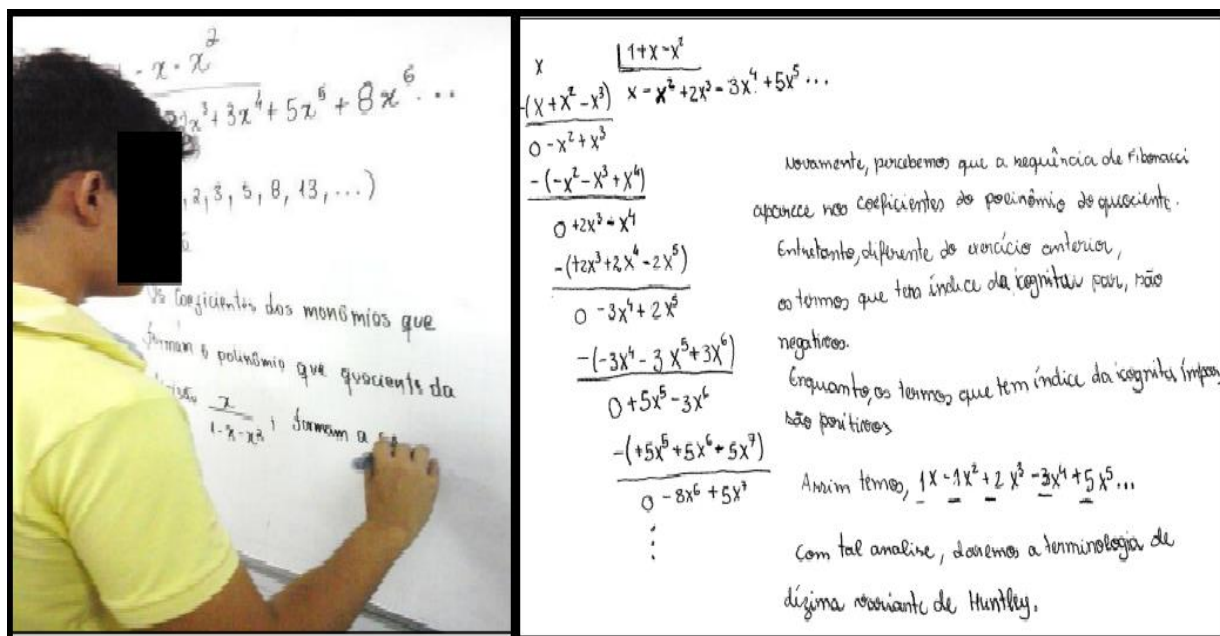 - x - x²
x³ + 3x⁴ + 5x⁵ + 8x⁶ ...
2, 3, 5, 8, 13, ...)
Os coeficientes dos monômios que
formam o polinômio que quociente da
x
1 - x - x² , formam a
x 1+x-x²
-(x+x²-x³) x - x² + 2x³ - 3x⁴ + 5x⁵ ...
0 - x² + x³
-(-x² - x³ + x⁴)
0 + 2x³ - x⁴
-(+2x³ + 2x⁴ - 2x⁵)
0 - 3x⁴ + 2x⁵
-(-3x⁴ - 3x⁵ + 3x⁶)
0 + 5x⁵ - 3x⁶
-(+5x⁵ + 5x⁶ - 5x⁷)
0 - 8x⁶ + 5x⁷
⋮
Novamente, percebemos que a sequência de Fibonacci
aparece nos coeficientes do polinômio do quociente.
Entretanto, diferente do exercício anterior,
os termos que tem índice da icognita par, são
negativos.
Enquanto, os termos que tem índice da icognita ímpar
são positivos
Assim temos, 1x - 1x² + 2x³ - 3x⁴ + 5x⁵ ...
com tal analise, daremos a terminologia de
dízima variante de Huntley.